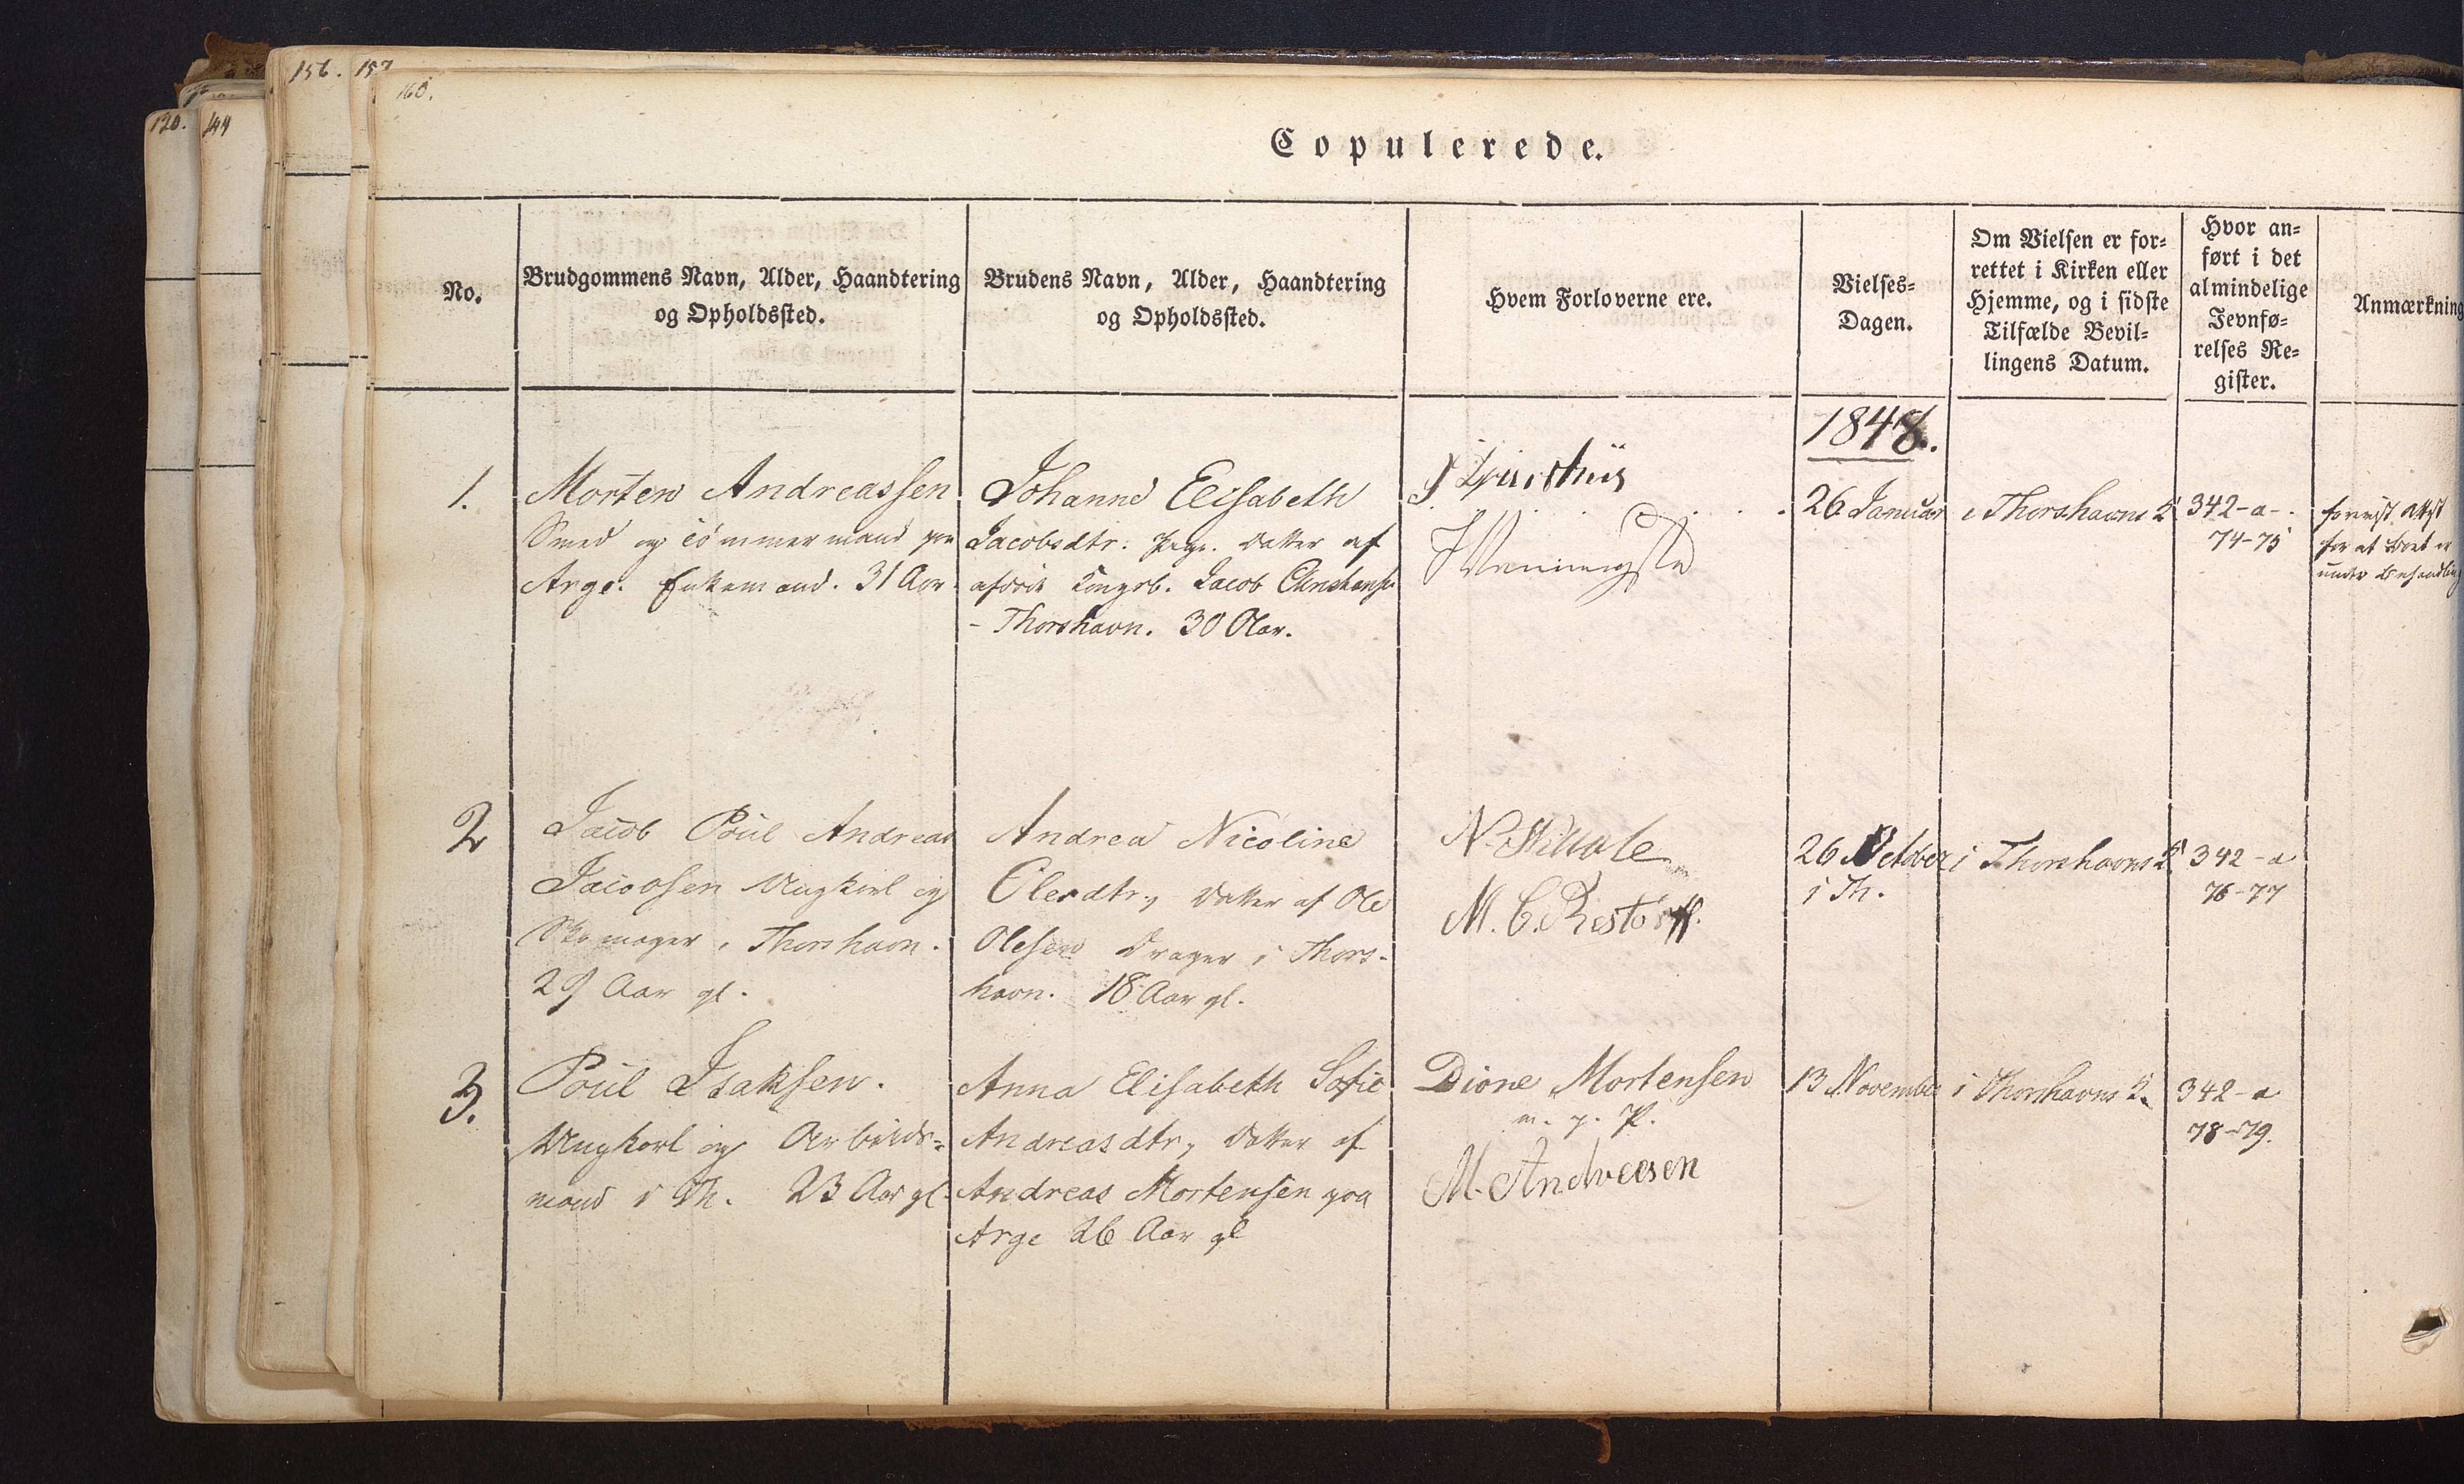 156. 157
160.
120. 144
Copulerede.
No.
Brudgommens Navn, Alder, Haandtering
og Opholdssted.
Brudens Navn, Alder, Haandtering
og Opholdssted.
Hvem Forloverne ere.
Vielses-
Dagen.
Om Vielsen er for-
rettet i Kirken eller
Hjemme, og i sidste
Tilfælde Bevil-
lingens Datum.
Hvor an-
ført i det
almindelige
Jevnfø-
relses Re-
gister.
Anmærkning
1848.
1.
Morten Andreassen
Smed og Tömmermand paa
Arge. Enkemand. 31 Aar.
Johanne Elisabeth
Jacobsdtr. Pige. Datter af
afdöde Kongsb. Jacob Christians.
- Thorshavn. 30 Aar.
26 Januar
i Thorshavns K
342-a-
74-75
forevist Attest
for at Boet er
under Behandling
2
Jacob Poul Andreas
Jacobsen Ungkarl og
Skomager i Thorshavn.
29 Aar gl.
Andrea Nicoline
Olesdtr, Datter af Ole
Olesen Drager i Thors-
havn. 18 Aar gl.
N.
M. C. Restorff.
26 October
i Th.
i Thorshavns K.
342-a
76-77
3.
Poul Isaksen.
Ungkarl og Arbeids-
mand i Th. 23 Aar gl.
Anna Elisabeth Sofie
Andreasdtr, Datter af
Andreas Mortensen paa
Arge 26 Aar gl
Dione Mortensen
m. p. P.
M. Andreesen
13 November
i Thorshavns K.
342-a
78-79.